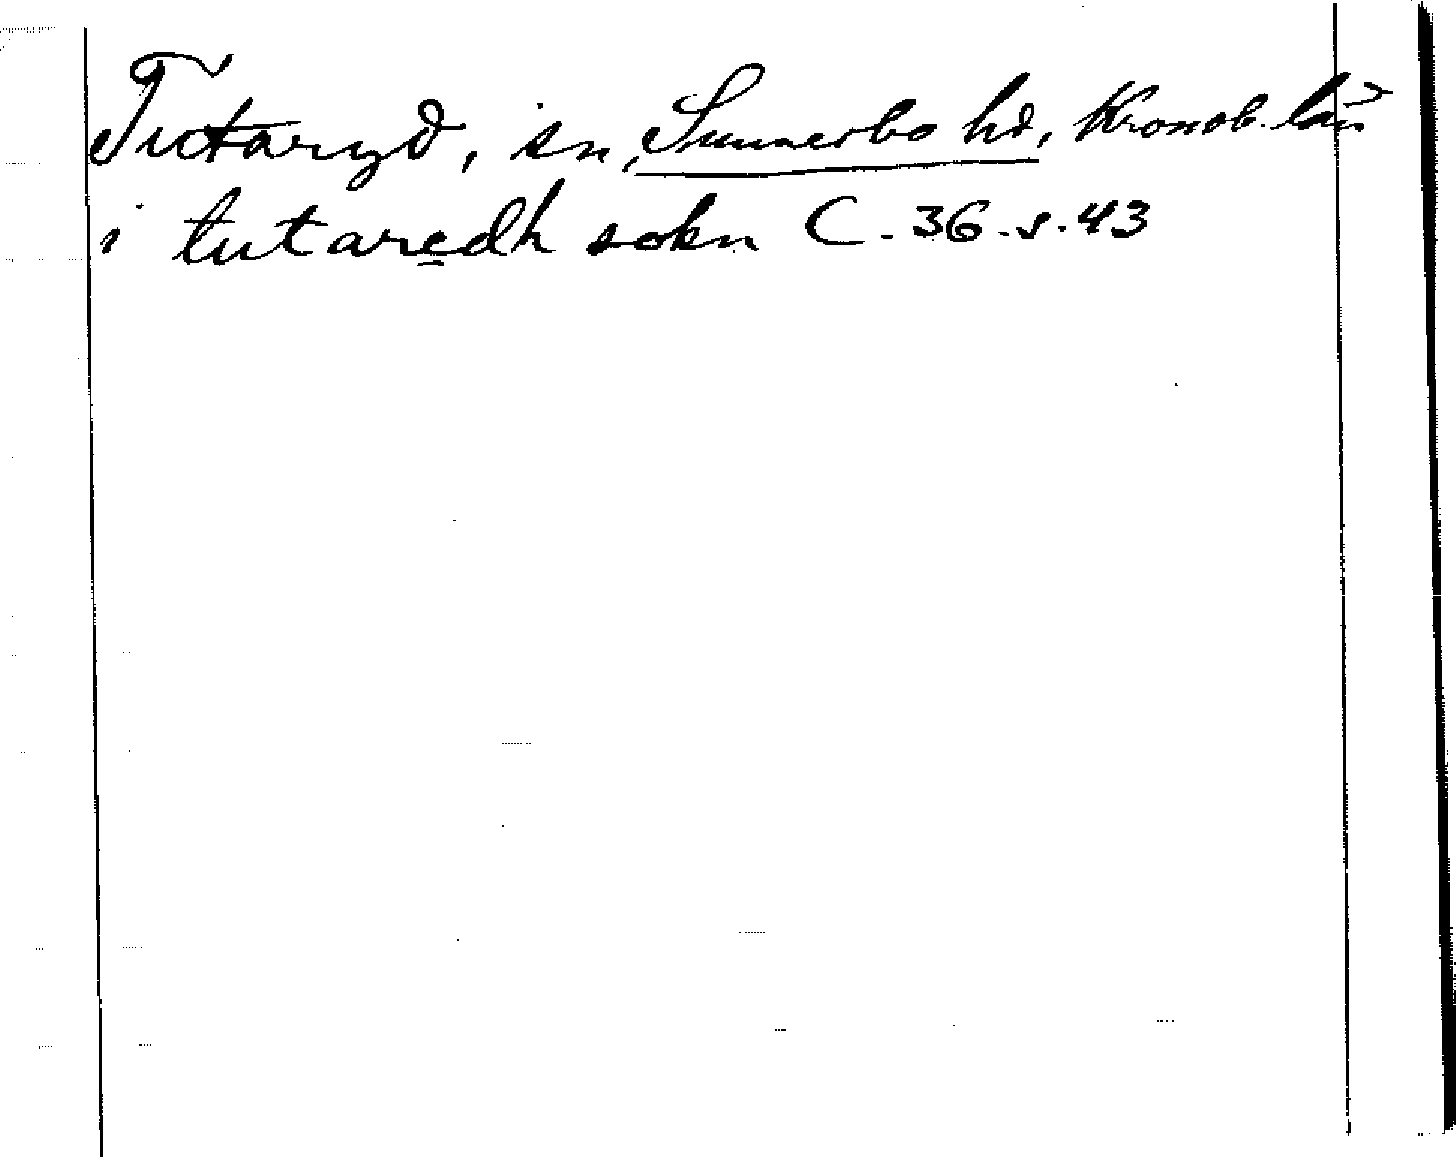 Tutaryd, sn, Sunnerbo hd, Kronob. län
i tutaredh sokn C. 36. s. 43